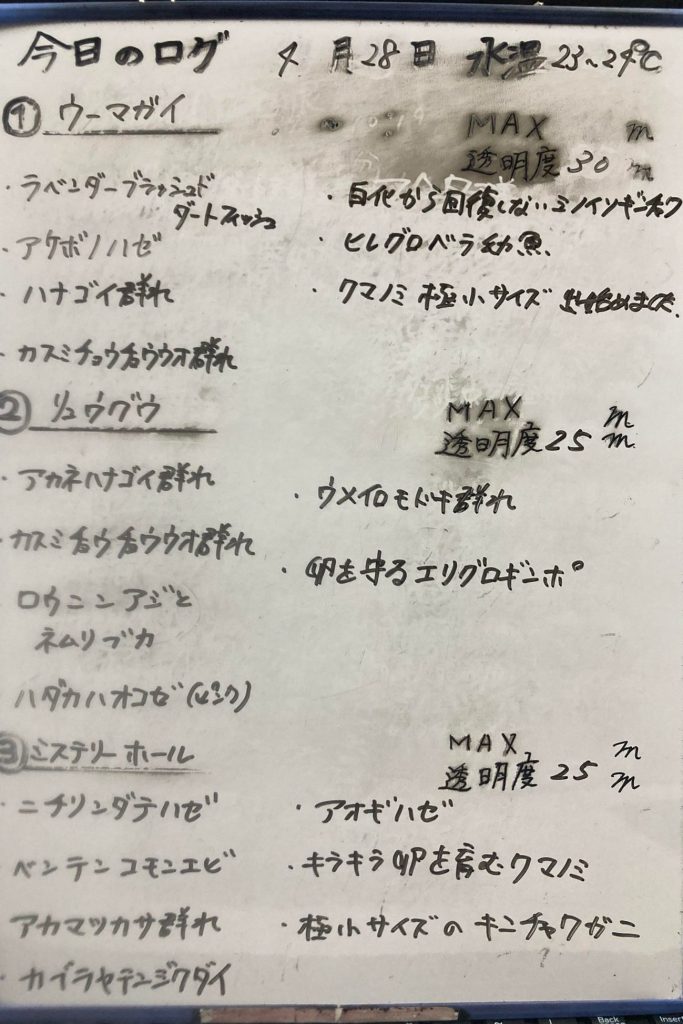 今日のログ 4月28日 水温23~24℃
① ウーマガイ
MAX m
透明度30m
・ラベンダーブラッシュド
ダートフィッシュ
・アケボノハゼ
・ハナゴイ群れ
・カスミチョウチョウウオ群れ
・白化から回復しないミノイソギンチャク
・ヒレグロベラ幼魚
・クマノミ極小サイズ 出始めました。
② リュウグウ
MAX m
透明度25m
・アカネハナゴイ群れ
・カスミチョウチョウウオ群れ
ロウニンアジと
ネムリブカ
ハダカハオコゼ(ピンク)
・ウメイロモドキ群れ
・卵を守るエリグロギンポ
③ ミステリーホール
MAX m
透明度25m
・ニチリンダテハゼ
ベンテンコモンエビ
アカマツカサ群れ
・カブラヤテンジクダイ
・アオギハゼ
・キラキラ卵を育むクマノミ
・極小サイズのキンチャクガニ
Back
Insert